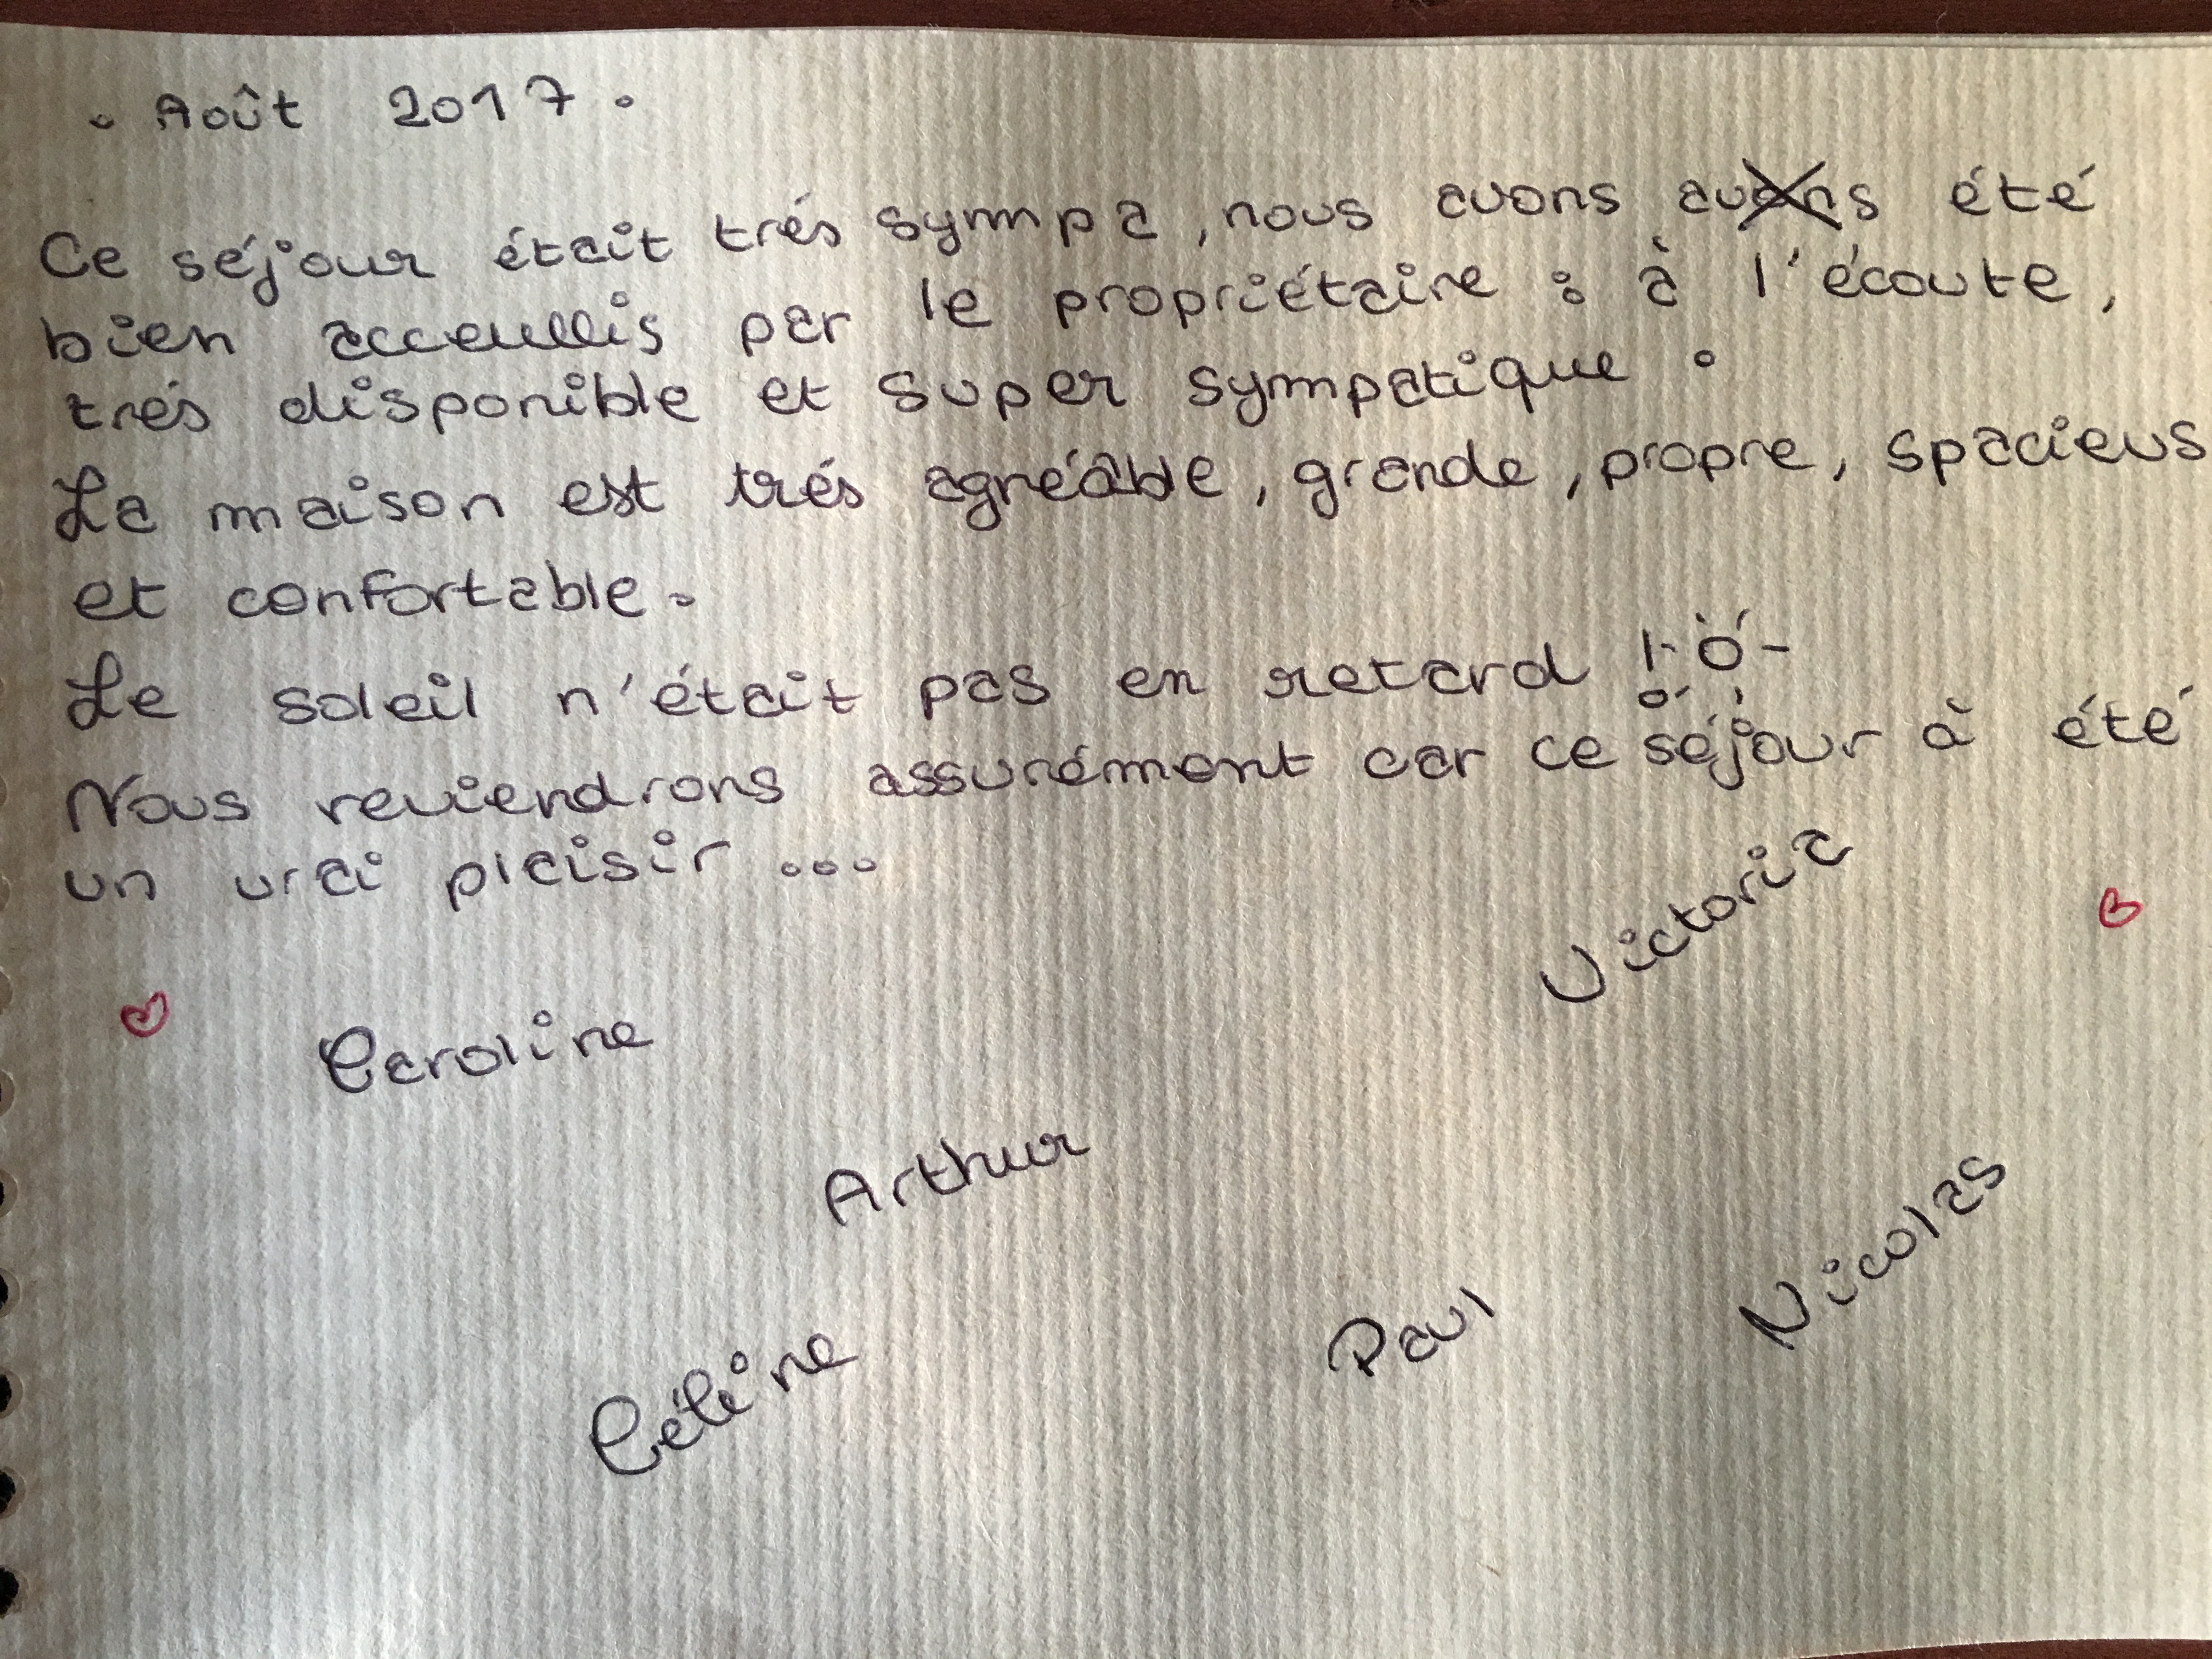 . Août 2017 .
Ce séjour était trés sympa, nous avons avons été
bien acceuillis par le propriétaire : à l'écoute,
trés disponible et super sympatique .
La maison est trés agréable, grande, propre, spacieus
et confortable .
Le soleil n'était pas en retard !
Nous reviendrons assurément car ce séjour à été
un vrai plaisir ...
Victoria
Caroline
Arthur
Nicolas
Paul
Céline